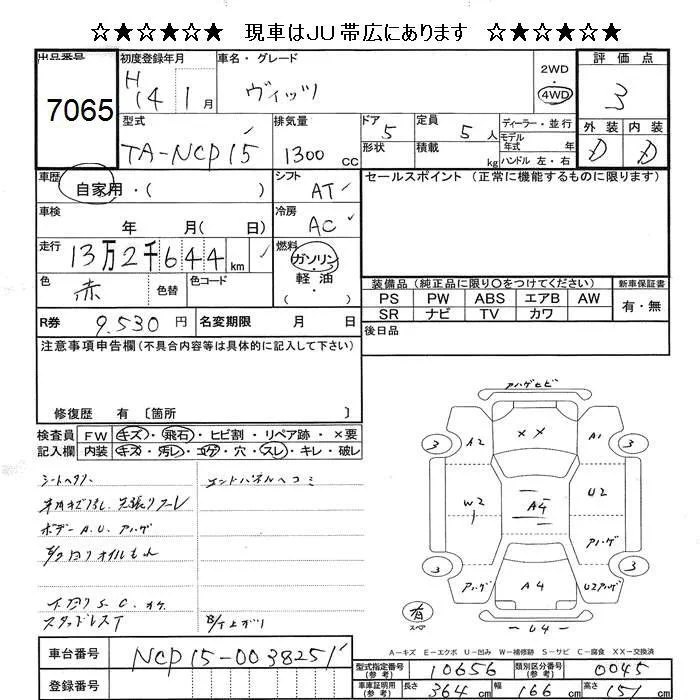 ☆★☆★☆ 現車はJU帯広にあります ☆★☆★☆
出品番号 初度登録年月 車名・グレード 評価点
7065 H14 1月 ヴィッツ 2WD 4WD 3
型式 排気量 ドア 定員 ディーラー・並行 外装 内装
TA-NCP15 1300cc 5 5人 モデル年式 年 D D
形状 積載 kg ハンドル 左・右
車歴 自家用・( ) シフト AT セールスポイント (正常に機能するものに限ります)
車検 年 月(日) 冷房 AC
走行 13万2千644km 燃料 ガソリン・軽油
色 赤 色替 色コード 装備品 (純正品に限り○をつけてください) 新車保証書
PS PW ABS エアB AW 有・無
SR ナビ TV カワ
R券 9.530円 名変期限 月 日 後日品
注意事項申告欄(不具合内容等は具体的に記入して下さい)
修復歴 有 〔箇所 〕
検査員 FW キズ・飛石・ヒビ割・リペア跡・×要
記入欄 内装 キズ・汚レ・コゲ・穴・スレ・キレ・破レ
シートヘタリ エンドパネルヘコミ
ボデーA.U.アハゲ
下回りS.C.
スタッドレスT
アハゲヒビ
3 A2 ×× A1 3
W2 A4 U2
アハゲ
3 アハゲ A4 U2アハゲ 3
有 スペア U4
A-キズ E-エクボ U-凹み W-補修跡 S-サビ C-腐食 XX-交換済
車台番号 NCP15-0038251
登録番号
型式指定番号(参考) 10656 類別区分番号(参考) 0045
車庫証明用(参考) 長さ 364cm 幅 166cm 高さ 151cm